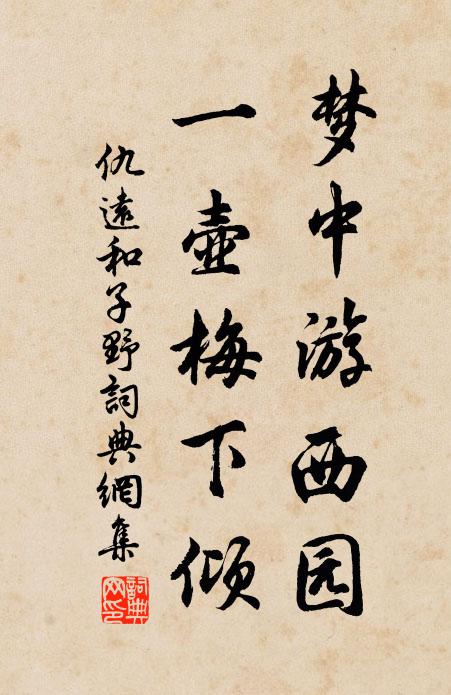 梦中游西园
一壶梅下倾
仇遠和子野詞典網集
詞典網印